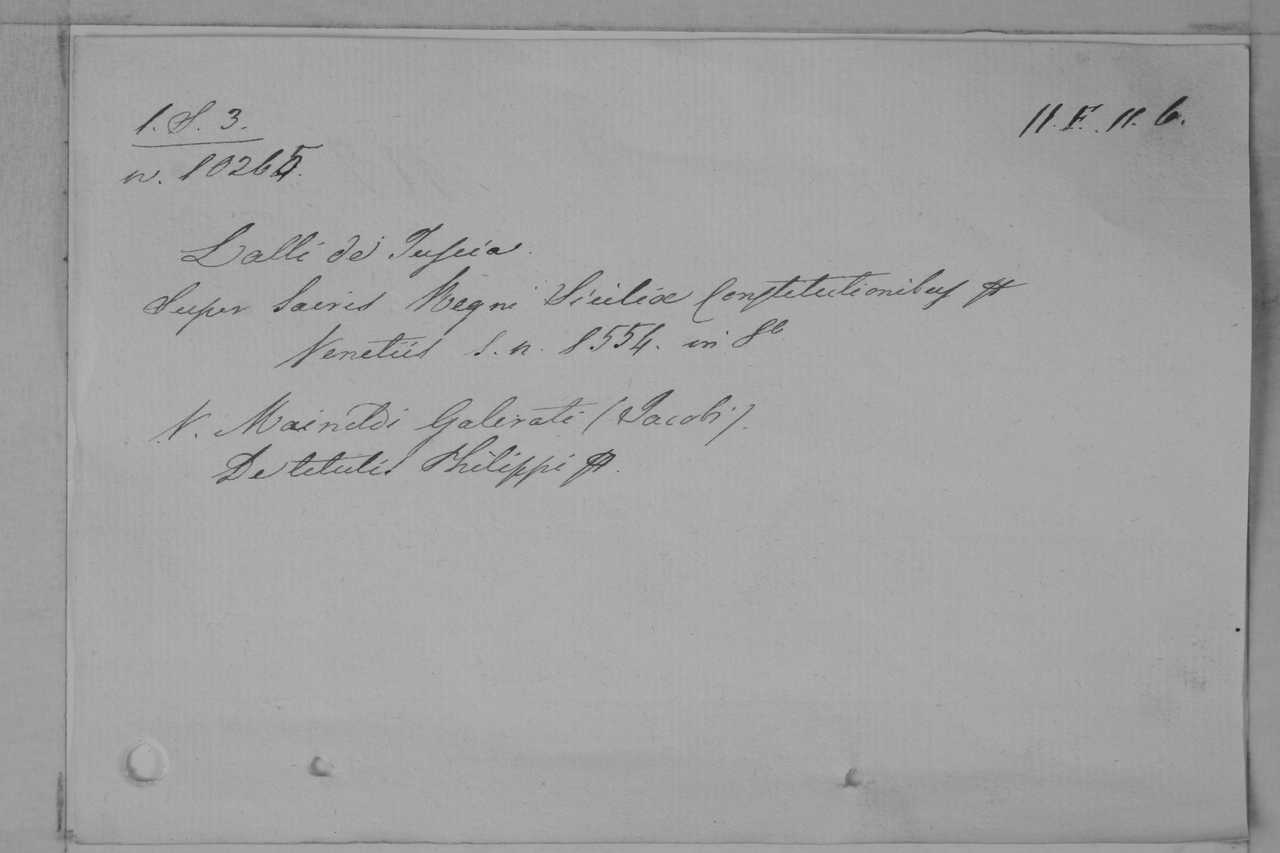 1. S. 3.
11. F. 11. 6.
n. 10265.
Lalli de Tuscia.
Super Sacris Regni Siciliæ Constitutionibus
Venetiis s. n. 1554. in 8º
V. Mainoldi Galerati (Jacobi).
De titulis Philippi